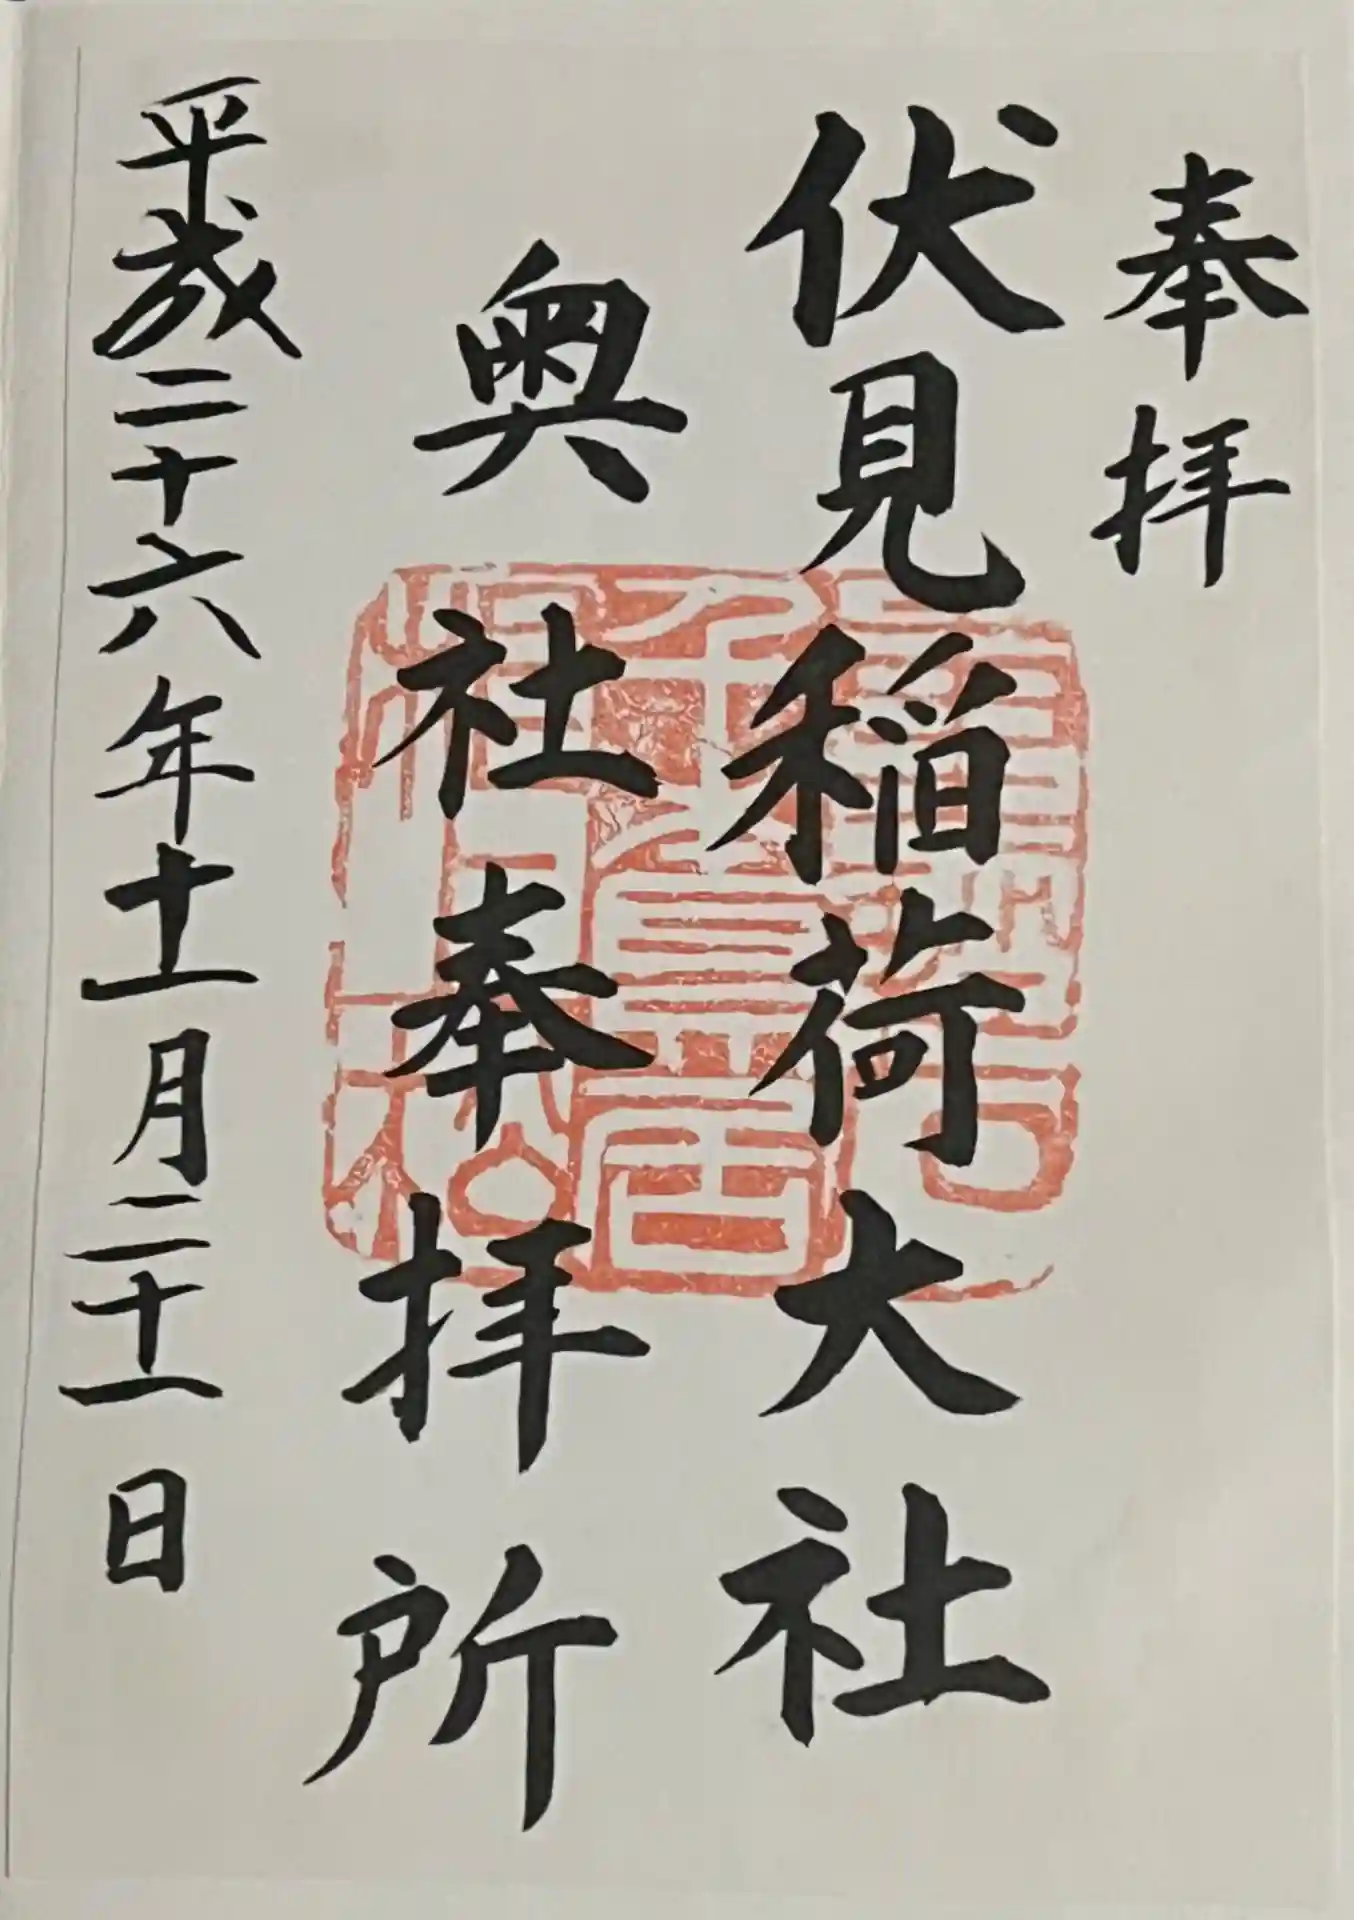 奉拝
伏見稲荷大社
奥社奉拝所
平成二十六年十一月二十一日